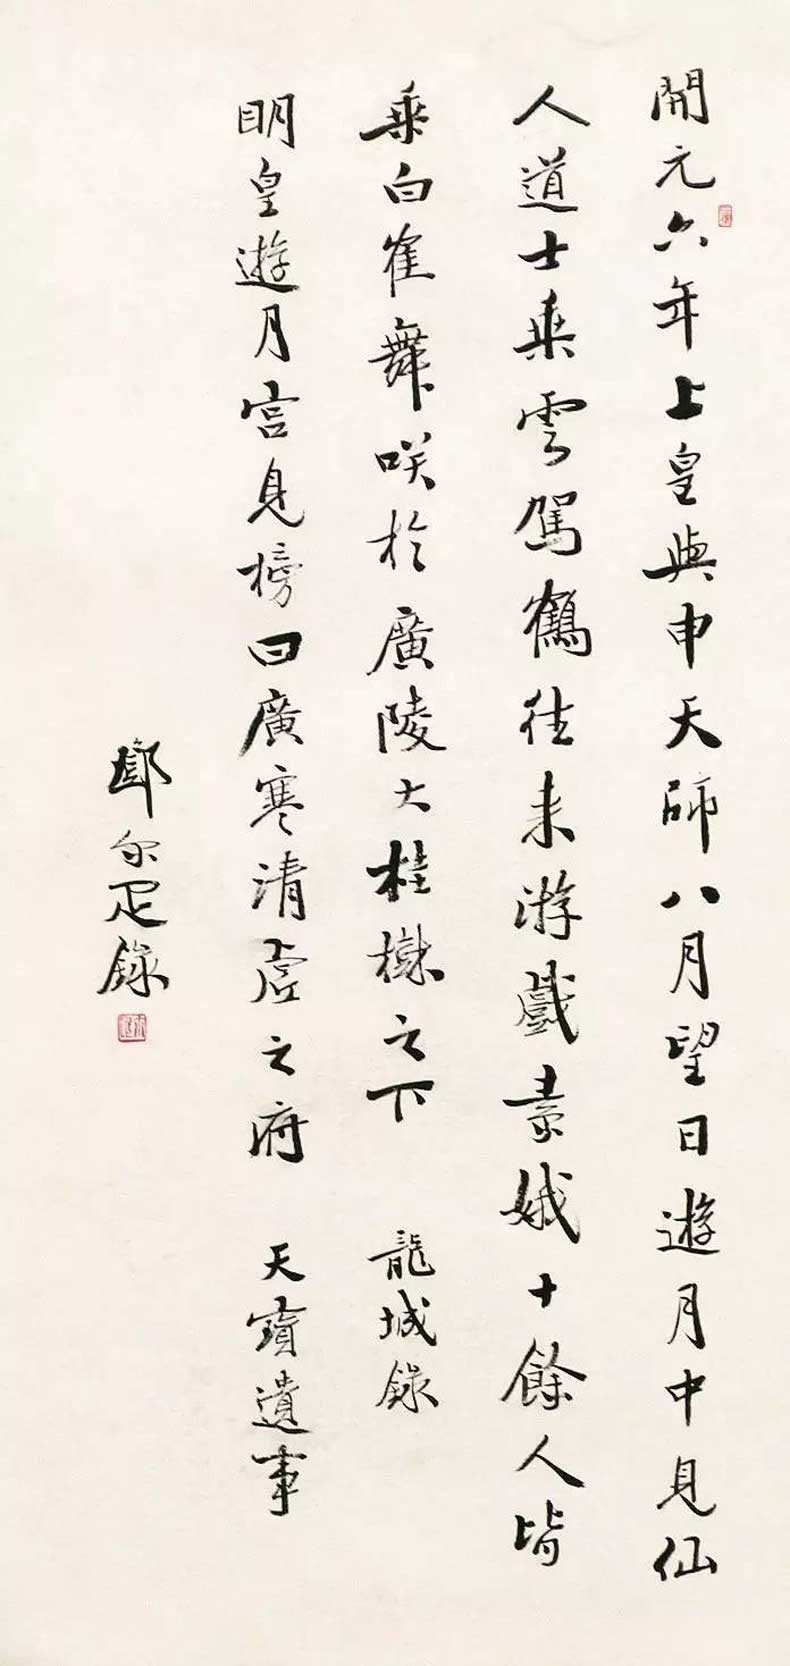 開元六年上皇與申天師八月望日遊月中見仙
人道士乘雲駕鶴往來游戲素娥十餘人皆
乘白隺舞咲於廣陵大桂樹之下 龍城錄
明皇遊月宮見榜曰廣寒清虛之府 天寶遺事
鄔尔疋錄